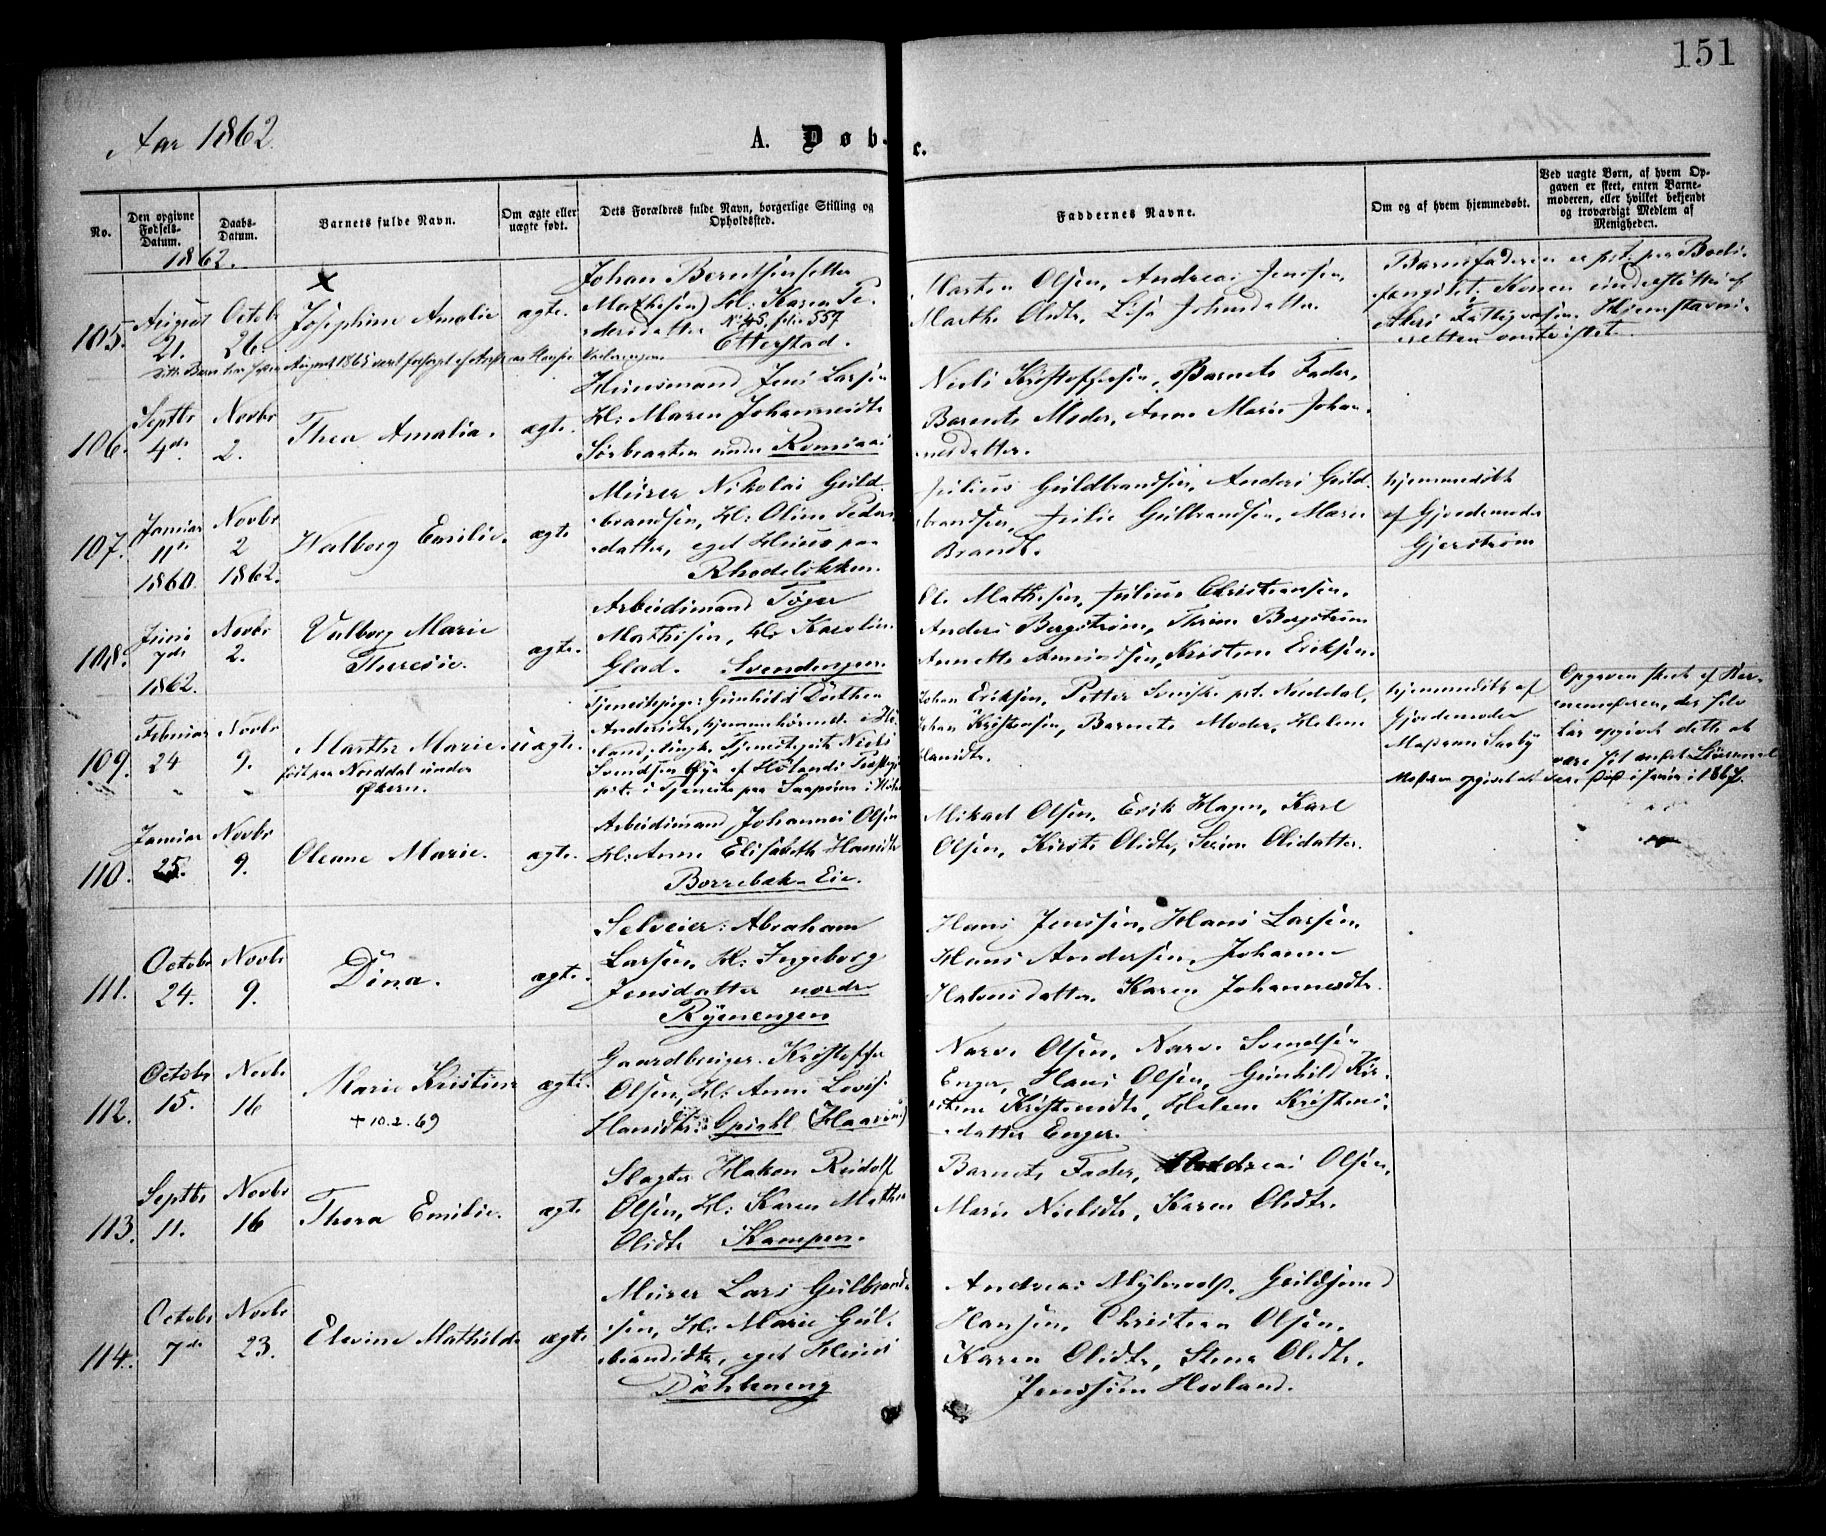 151
Aar 1862.
A. Døbte.
No.
Den opgivne Fødsels-Datum.
Daabs-Datum.
Barnets fulde Navn.
Om ægte eller uægte født.
Dets Forældres fulde Navn, borgerlige Stilling og Opholdssted.
Faddernes Navne.
Om og af hvem hjemmedøbt.
Ved uægte Børn, af hvem Opgaven er skeet, enten Barnemoderen, eller hvilket bekjendt og troværdigt Medlem af Menigheden.
1862.
105.
August 21.
Octob 26.
x
Josephine Amalie
ægte.
Johan Berntsen
Mathisen) H: Karen Pe-
dersdatter No 45, folio 557
Etterstad.
Marten Olsen, Andreas Jensen,
Marthe Olsdtr, Lisa Johnsdatter.
Barnefaderen er p.t. paa Bods-
fængslet. Konen understøttes af
Akers Fattigvæsen. Hjemstavns-
retten omtvistet.
106.
Septbr 4de
Novbr 2.
Thea Amalia.
ægte.
Huusmand Jens Larsen
H: Maren Johannesdtr
Sørbraaten under
Niels Kristoffersen, Barnets Fader,
Barnets Moder, Anne Marie Johan-
nesdatter.
107.
Januar 11te 1860.
Novbr 2 1862.
Valborg Emilie.
ægte
Murer Nikolai Guld-
brandsen, H: Oline Peders-
datter, eget Huus paa
Rhodeløkken.
Julius Guldbrandsen, Anders Guld-
brandsen, Julie Gulbrandsen, Maren
Brandt.
hjemmedøbt
af Gjordemoder
Gjerstrøm
108.
Juni 7de 1862.
Novbr 2.
Valborg Marie
Theresie.
ægte.
Arbeidsmand Tøger
Mathisen, H: Karoline
Glad. Svendengen.
Ole Mathisen, Julius Christiansen,
Anders Bergstrøm, Thrine Bergstrøm
Annette Amundsen, Kristine Eriksen.
109.
Februar 24
Novbr 9.
Marthe Marie.
født paa Norddal under
Økern.
uægte.
Tjenestepige: Gunhild Dorthea
Andersdtr, hjemmehørende i Hø-
land, Ungk. Tjenestegut Niels
Svendsen Øye af Hølands Præstegj.
p.t. i Tjeneste paa
Johan Eriksen, Petter Svenske p.t. Norddal,
Johan Kristensen, Barnets Moder, Helene
Hansdtr.
hjemmedøbt af
Gjordemoder
Madam Sæby
Opgaven skeet af Bar-
nemoderen, der selv
har opgivet dette at
110.
Januar 25.
Novbr 9.
Oleane Marie.
ægte.
Arbeidsmand Johannes Olsen
H: Anne Elisabeth Hansdtr
Borrebæk-Eie.
Mikael Olsen, Erik Hagen, Karl
Olsen, Kirsti Olsdtr, Serine Olsdatter.
111.
Octobr 24.
Novbr 9.
Dina.
ægte.
Selveier: Abraham
Larsen, H: Ingeborg
Jensdatter nordr
Ryenengen
Hans Jenssen, Hans Larsen,
Hans Andersen, Johanne
Halvorsdatter, Karen Johannesdtr.
112.
Octobr 15.
Novbr 16
Marie Kristine
+ 10.2.69
ægte.
Gaardbruger: Kristoffer
Olsen, H: Anne Lovise
Hansdtr:
Narve Olsen, Narve Svendsen
Enger, Hans Olsen, Gunhild Kir-
stine Kristensdtr, Helene Kristens-
datter Enger.
113.
Septbr 11.
Novbr 16
Thora Emilie.
ægte
Slagter Hakon Rudolf
Olsen, H: Karen Mathea
Olsdtr Kampen.
Barnets Fader, Andreas Olsen,
Marie Nielsdtr, Karen Olsdtr.
114.
Octobr 7de
Novbr 23.
Elevine Mathilde
ægte
Murer Lars Gulbrand-
sen, H: Marie Gul-
brandsdtr, eget Huus
Dæhleneng
Andreas
Hansen, Christian Olsen,
Karen Olsdtr, Stine Olsdtr,
Hovland.